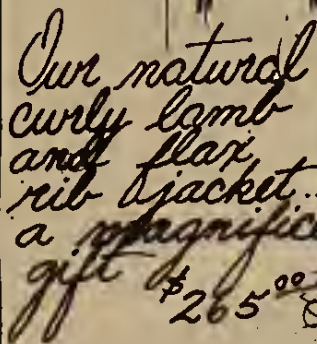 Our natural
curly lamb
and flax
rib jacket..
a magnifice
gift $265.00